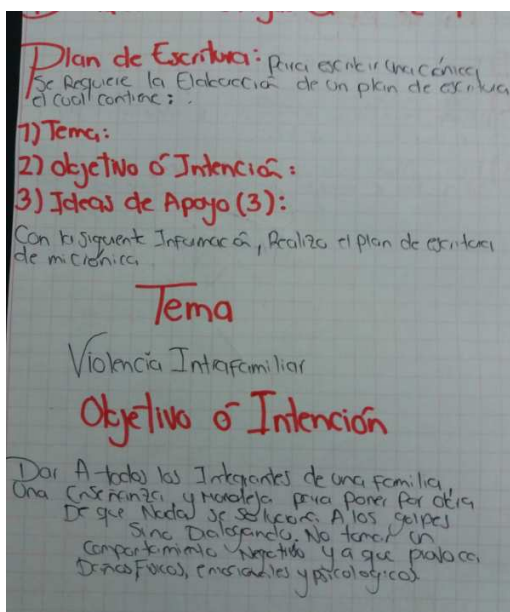 Plan de Escritura: Para escribir una crónica
se Requiere la Elaboración de un plan de escritura
el cual contiene:
1) Tema:
2) Objetivo ó Intención:
3) Ideas de Apoyo (3):
Con la siguiente Información, Realizo el plan de escritura
de mi crónica
Tema
Violencia Intrafamiliar
Objetivo ó Intención
Dar A todos los Integrantes de una familia,
Una Enseñanza, y Moraleja para poner por obra
De que Nada se soluciona A los golpes
Sino Dialogando. No tomar un
Comportamiento Negativo ya que provoca
Daños Físicos, emocionales y psicologicos.